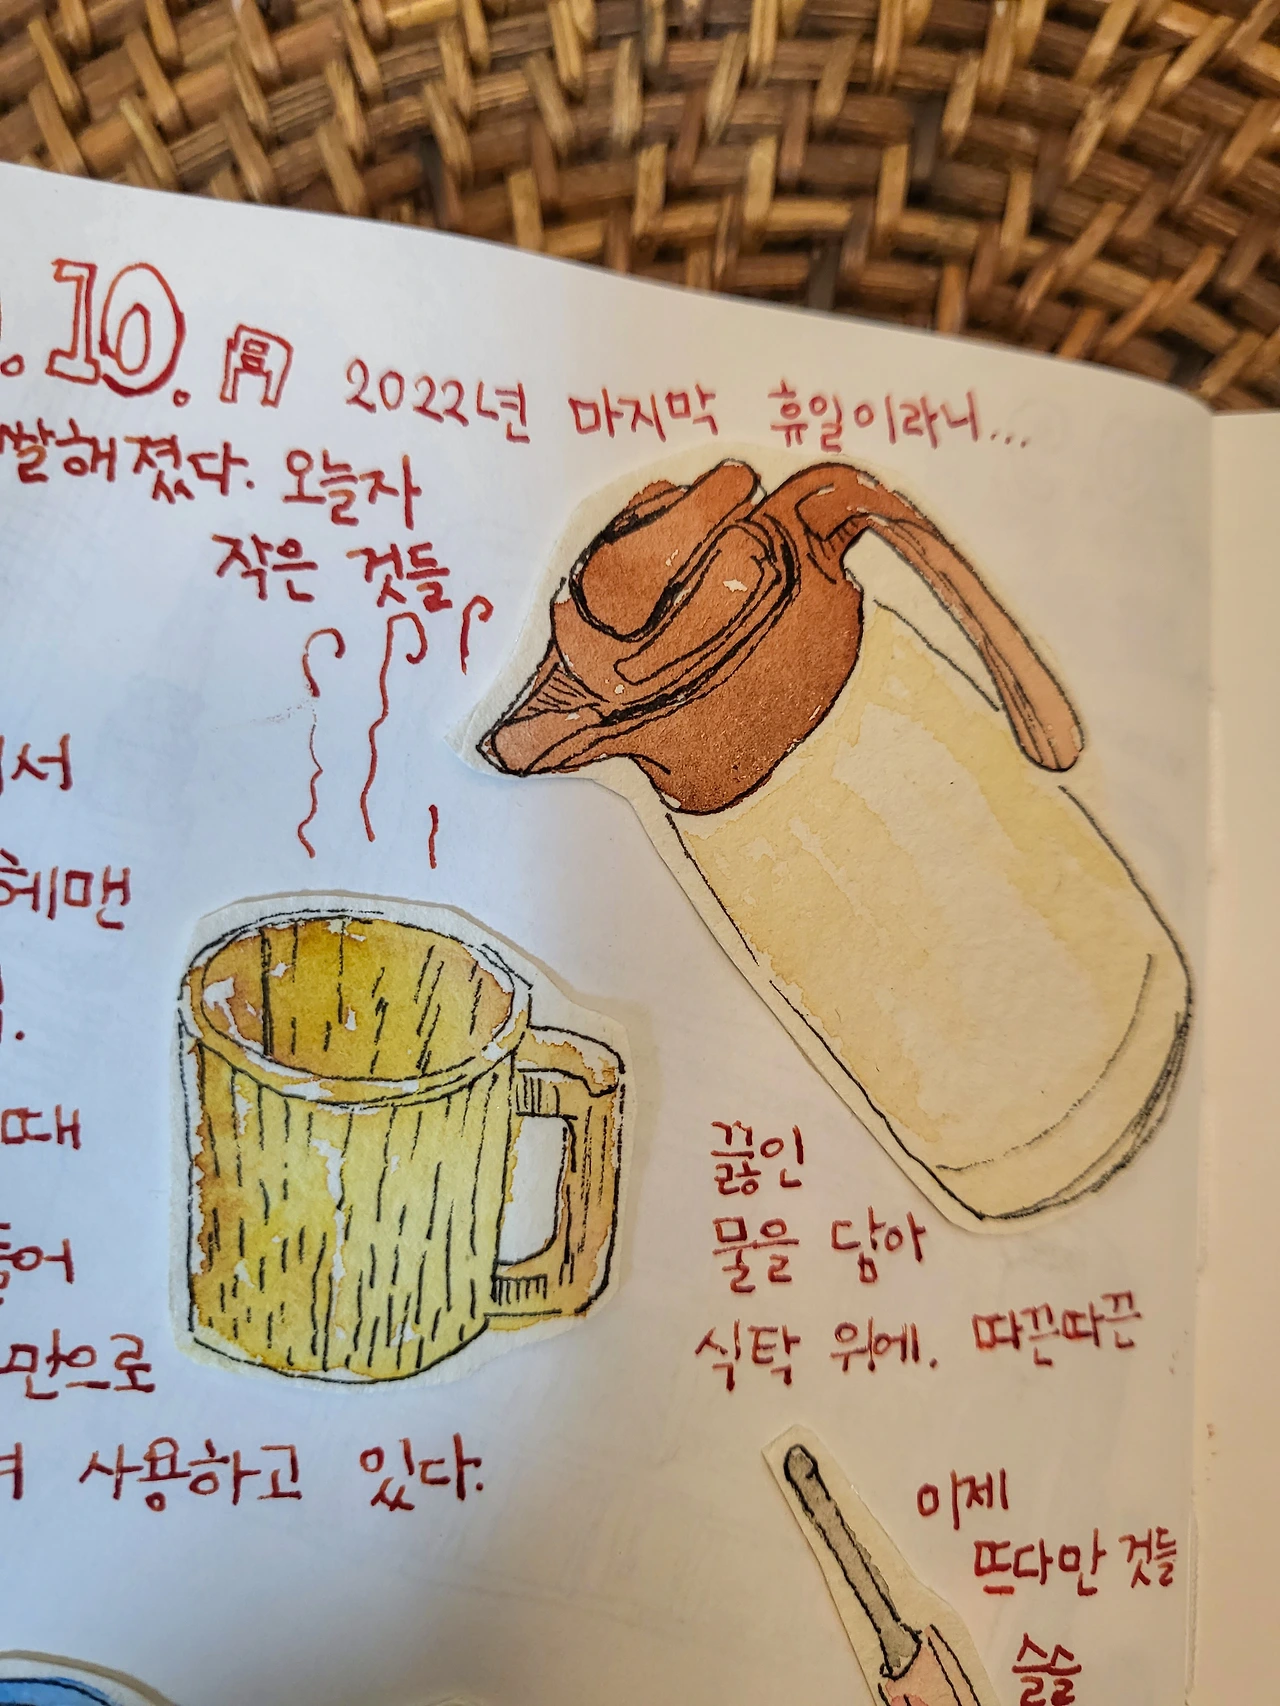 .10. 月 2022년 마지막 휴일이라니...
쌀해졌다. 오늘자
작은 것들
서
헤맨
때
만으로
사용하고 있다.
끓인
물을 담아
식탁 위에. 따끈따끈
이제
뜨다만 것들
슬슬